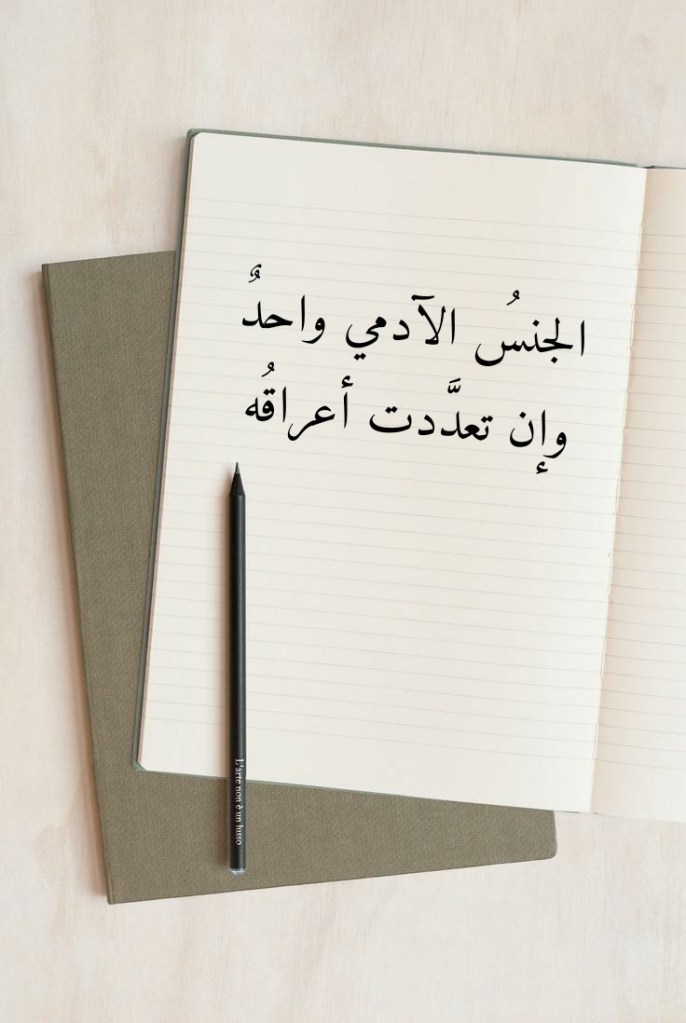 الجنسُ الآدمي واحدٌ
وإن تعدَّدت أعراقُه
L'arte non è un lusso